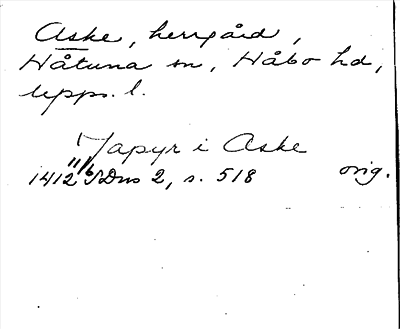 Aske, herrgård,
Håtuna sn, Håbo hd,
Upps. l.
Japyr i Aske
1412 11/6 SDns 2, s. 518 orig.